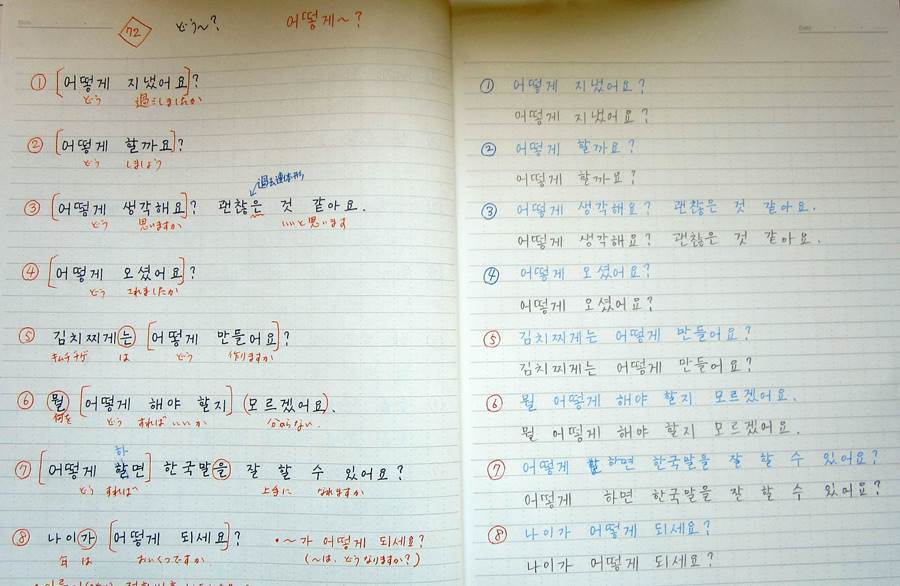 72 どう〜? 어떻게~?
① [어떻게 지냈어요]?
どう 過ごしましたか
② [어떻게 할까요]?
どう しましょう
過去連体形
③ [어떻게 생각해요]? 괜찮은 것 같아요.
どう 思いますか いいと思います
④ [어떻게 오셨어요]?
どう これましたか
⑤ 김치찌개는 [어떻게 만들어요]?
キムチチゲ は どう 作りますか
⑥ 뭘 [어떻게 해야 할지] (모르겠어요).
何を どう すればいいか 分からない
하
⑦ [어떻게 할면] 한국말을 잘 할 수 있어요?
どう すれば 上手に なれますか
⑧ 나이가 [어떻게 되세요]? •~가 어떻게 되세요?
年 は おいくつですか (〜は、どうなりますか?)
Date
① 어떻게 지냈어요?
어떻게 지냈어요?
② 어떻게 할까요?
어떻게 할까요?
③ 어떻게 생각해요? 괜찮은 것 같아요.
어떻게 생각해요? 괜찮은 것 같아요.
④ 어떻게 오셨어요?
어떻게 오셨어요?
⑤ 김치찌게는 어떻게 만들어요?
김치찌게는 어떻게 만들어요?
⑥ 뭘 어떻게 해야 할지 모르겠어요.
뭘 어떻게 해야 할지 모르겠어요.
⑦ 어떻게 하면 한국말을 잘 할 수 있어요?
어떻게 하면 한국말을 잘 할 수 있어요?
⑧ 나이가 어떻게 되세요?
나이가 어떻게 되세요?